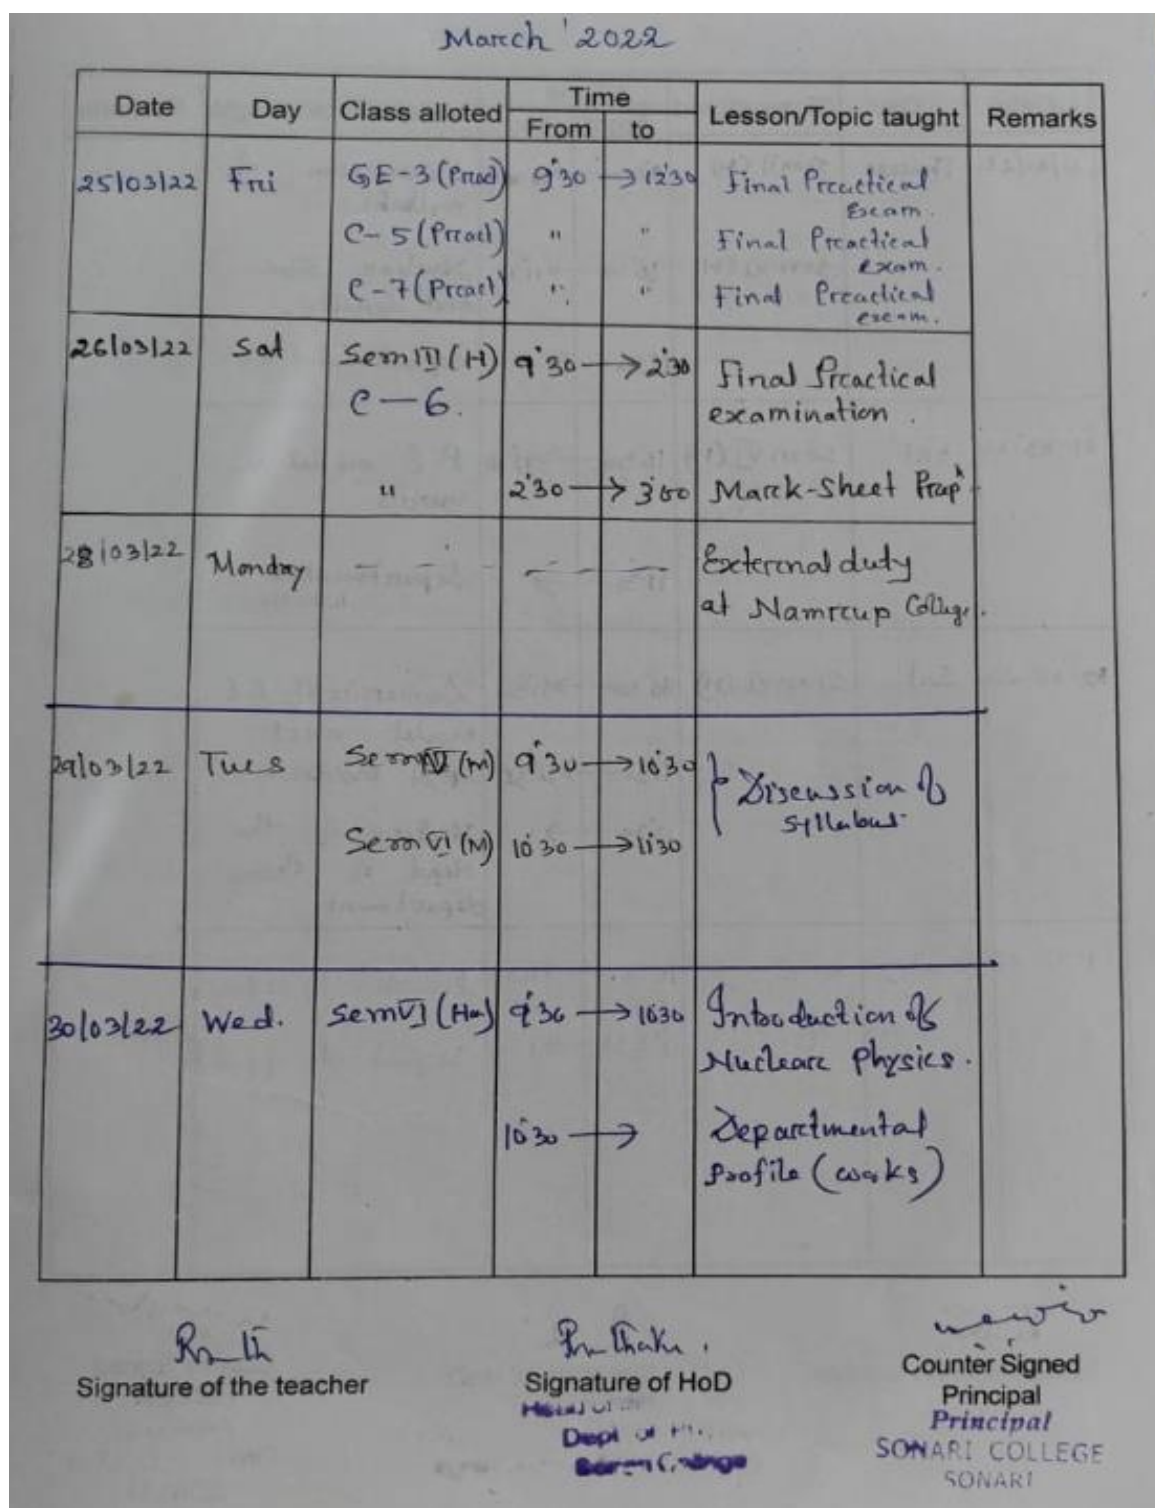 March '2022
Date Day Class alloted Time Lesson/Topic taught Remarks
From to
25/03/22 Fri GE-3 (Prac) 9:30 → 12:30 Final Practical
Exam.
C-5 (Prac) " " Final Practical
exam.
C-7 (Prac) " " Final Practical
exam.
26/03/22 Sat Sem III (H) 9:30 → 2:30 Final Practical
C-6. examination.
" 2:30 → 3:00 Mark-Sheet Prepⁿ
28/03/22 Monday External duty
at Namrup College.
29/03/22 Tues Sem (M) 9:30 → 10:30 Discussion of
Syllabus.
Sem VI (M) 10:30 → 11:30
30/03/22 Wed. Sem VI (Hon) 9:30 → 10:30 Introduction of
Nuclear Physics.
10:30 → Departmental
Profile (works)
Signature of the teacher
Signature of HoD
Counter Signed
Principal
Principal
SONARI COLLEGE
SONARI
Dept of